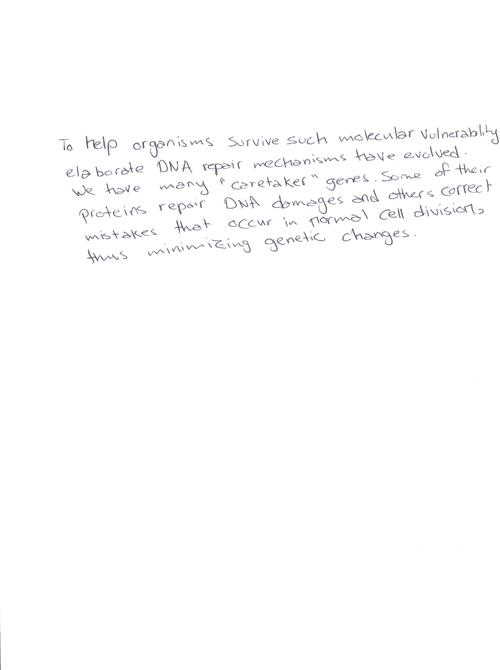 To help organisms survive such molecular vulnerablity
elaborate DNA repair mechanisms have evolved.
We have many "caretaker" genes. Some of their
proteins repair DNA damages and others correct
mistakes that occur in normal cell division,
thus minimizing genetic changes.